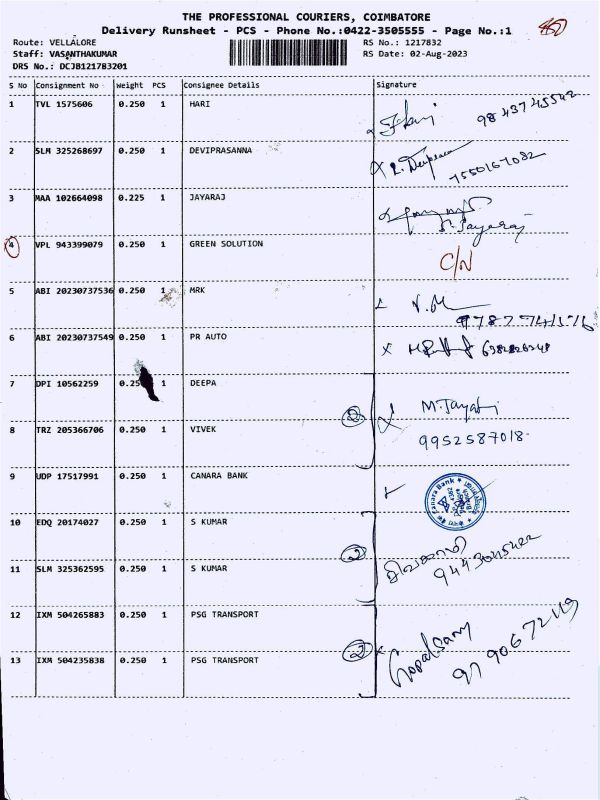 THE PROFESSIONAL COURIERS, COIMBATORE
Delivery Runsheet - PCS - Phone No.:0422-3505555 - Page No.:1
Route: VELLALORE
RS No.: 1217832
Staff: VASANTHAKUMAR
RS Date: 02-Aug-2023
DRS No.: DCJB121783201
S No Consignment No Weight PCS Consignee Details Signature
1 TVL 1575606 0.250 1 HARI 9843745542
2 SLM 325268697 0.250 1 DEVIPRASANNA 7550167082
3 MAA 102664098 0.225 1 JAYARAJ
4 VPL 943399079 0.250 1 GREEN SOLUTION C/N
5 ABI 20230737536 0.250 1 MRK
6 ABI 20230737549 0.250 1 PR AUTO
7 DPI 10562259 0.250 1 DEEPA
2
8 TRZ 205366706 0.250 1 VIVEK 9952587018
9 UDP 17517991 0.250 1 CANARA BANK Canara Bank
10 EDQ 20174027 0.250 1 S KUMAR
2
11 SLM 325362595 0.250 1 S KUMAR
12 IXM 504265883 0.250 1 PSG TRANSPORT Gopalsamy
2
13 IXM 504235838 0.250 1 PSG TRANSPORT